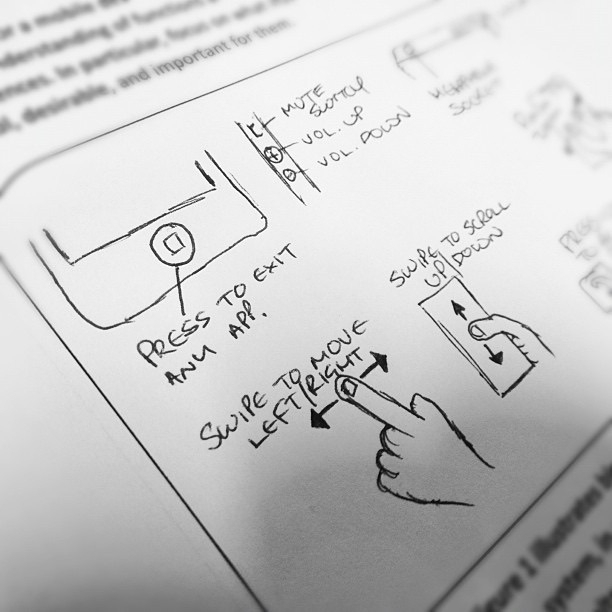 or a mobile
understanding of function
ences. In particular, focus on what
al, desirable, and important for them.
MUTE
SWITCH
VOL. UP
VOL. DOWN
PRESS TO EXIT
ANY APP.
SWIPE TO SCROLL
UP/DOWN
SWIPE TO MOVE
LEFT/RIGHT
gure 1 illustrates
system, in